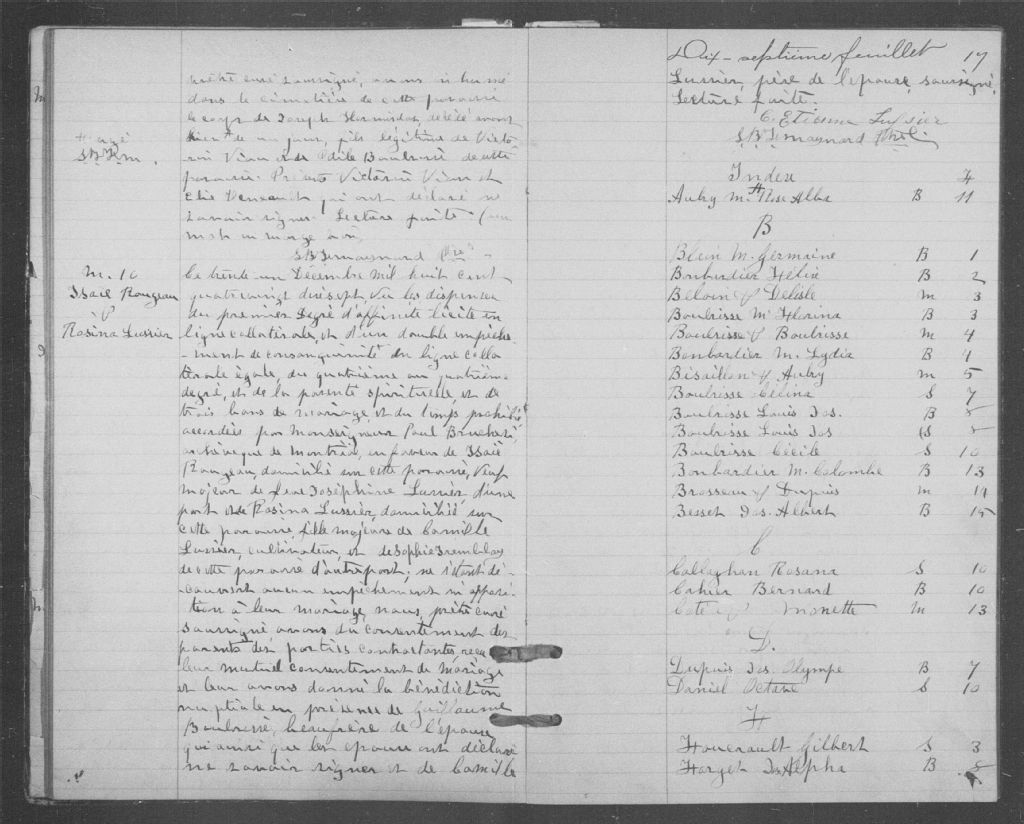 prêtre curé soussigné, avons inhumé
dans le cimetière de cette paroisse
le corps de Joseph Hormisdas, décédé avant
hier de un jour, fils légitime de Victo
rin Viau et de Odile Boulrisse de cette
paroisse. Présents Victorin Viau et
Elie qui ont déclaré ne
savoir signer. Lecture faite.
mot en marge
S.B. Jermaynard Ptre
M. 10
Isaïe Rougeau
&
Rosina Lussier
Ce trente-un Décembre mil huit cent
quatrevingt dix sept, vu les dispenses
du premier degré d'affinité licite en
ligne collatérale, et d'un double empêche
-ment de consanguinité en ligne colla
térale égale, du quatrième au quatrième
degré, et de la parenté spirituelle, et de
trois bans de mariage, et du temps prohibé
accordées par Monseigneur Paul Bruchesi
archevêque de Montréal, en faveur de Isaïe
Rougeau, domicilié sur cette paroisse, veuf
majeur de feue Joséphine Lussier, d'une
part et de Rosina Lussier, domiciliée sur
cette paroisse, fille majeure de Camille
Lussier, cultivateur, et de Sophie Tremblay
de cette paroisse d'autre part; ne s'étant dé-
couvert aucun empêchement ni opposi
tion à leur mariage, nous, prêtre curé
soussigné avons du consentement des
parents des parties contractantes, reçu
leur mutuel consentement de mariage
et leur avons donné la bénédiction
nuptiale en présence de Guillaume
Boulrisse, beaufrère de l'épouse
qui ainsi que les époux ont déclaré
ne savoir signer et de Camille
Dix-septième feuillet 17
Lussier, père de l'épouse, soussigné.
Lecture faite.
C. Etienne Lussier
S.B. Jermaynard Ptre
Index
A
Aubry M. Rose Alba B 11
B
Blain M. Germaine B 1
Bonbardier Hélie B 2
Beloin & Delisle M 3
Boulrisse M. Florina B 3
Boulrisse & Boulrisse M 4
Bonbardier M. Lydia B 4
Bisaillon & Aubry M 5
Boulrisse Célina S 7
Boulrisse Louis Jos. B 8
Boulrisse Louis Jos S 8
Boulrisse Cécile S 10
Bonbardier M. Colombe B 13
Brosseau & Dupuis M 14
Besset Jos. Albert B 15
C
Callaghan Rosana S 10
Cahier Bernard B 10
Coté & Monette M 13
D.
Dupuis Jos. Olympe B 7
Daniel Octave S 10
H
Houcrault Gilbert S 3
Harget Jos Alpha B 8